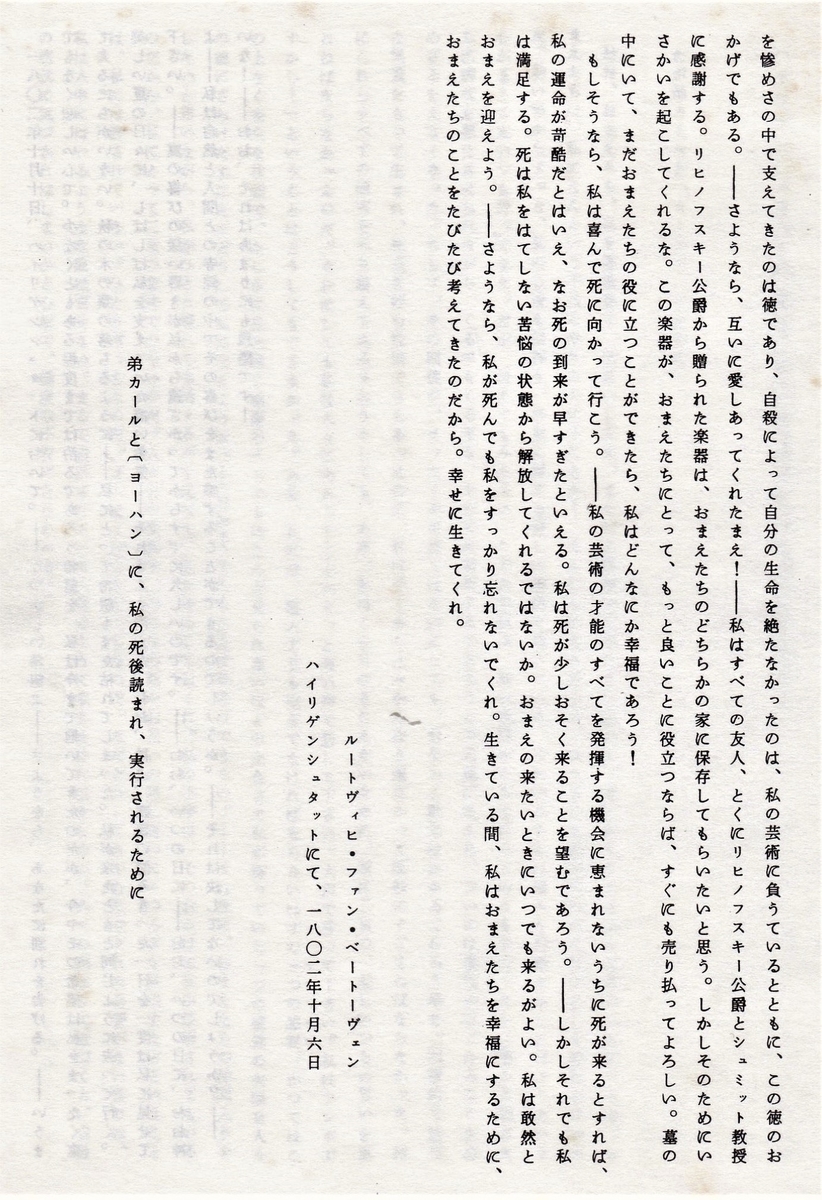 を惨めさの中で支えてきたのは徳であり、自殺によって自分の生命を絶たなかったのは、私の芸術に負うているとともに、この徳のお
かげでもある。――さようなら、互いに愛しあってくれたまえ！――私はすべての友人、とくにリヒノフスキー公爵とシュミット教授
に感謝する。リヒノフスキー公爵から贈られた楽器は、おまえたちのどちらかの家に保存してもらいたいと思う。しかしそのためにい
さかいを起こしてくれるな。この楽器が、おまえたちにとって、もっと良いことに役立つならば、すぐにも売り払ってよろしい。墓の
中にいて、まだおまえたちの役に立つことができたら、私はどんなにか幸福であろう！
もしそうなら、私は喜んで死に向かって行こう。――私の芸術の才能のすべてを発揮する機会に恵まれないうちに死が来るとすれば、
私の運命が苛酷だとはいえ、なお死の到来が早すぎたといえる。私は死が少しおそく来ることを望むであろう。――しかしそれでも私
は満足する。死は私をはてしない苦悩の状態から解放してくれるではないか。おまえの来たいときにいつでも来るがよい。私は敢然と
おまえを迎えよう。――さようなら、私が死んでも私をすっかり忘れないでくれ。生きている間、私はおまえたちを幸福にするために、
おまえたちのことをたびたび考えてきたのだから。幸せに生きてくれ。
ルートヴィヒ・ファン・ベートーヴェン
ハイリゲンシュタットにて、一八〇二年十月六日
弟カールと〔ヨーハン〕に、私の死後読まれ、実行されるために